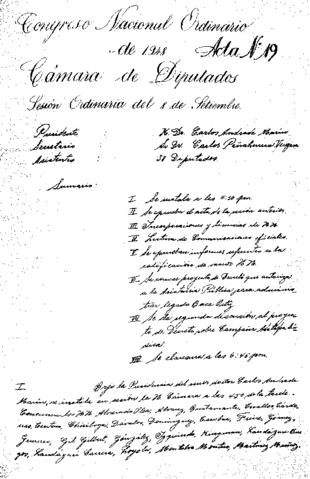 Congreso Nacional Ordinario
de 1948 Acta Nº 19
Cámara de Diputados
Sesión Ordinaria del 8 de Setiembre.
Presidente : H. Dr. Carlos Andrade Marín
Secretario : Sr. Dr. Carlos Peñaherrera
Asistentes : 38 Diputados.
Sumario:
I Se instala a las 4.50 p.m.
II Se aprueba el acta de la sesión anterior.
III y licencias de H.H.
IV Lectura de Comunicaciones oficiales.
V Se aprueban informes referentes a la
calificación de varios H.H.
VI Se conoce proyecto de Decreto que autoriza
a la Asistencia Pública, para adminis-
trar legado Baca
VII Se da segunda discusión al proyec-
to de Decreto, sobre Campaña
VIII Se clausura a las 6.45 p.m.
I. Bajo la Presidencia del señor doctor Carlos Andrade
Marín, se instala en sesión la H. Cámara a las 4.50 de la tarde.
Concurren los H.H. Alvarado Alvarez, Bustamante, Cevallos
Chiriboga, Dávalos, Domínguez, Freire, Gómez,
Guerrero, Gil Gilbert, González, Izquierdo,
Loyola, Montalvo Martínez